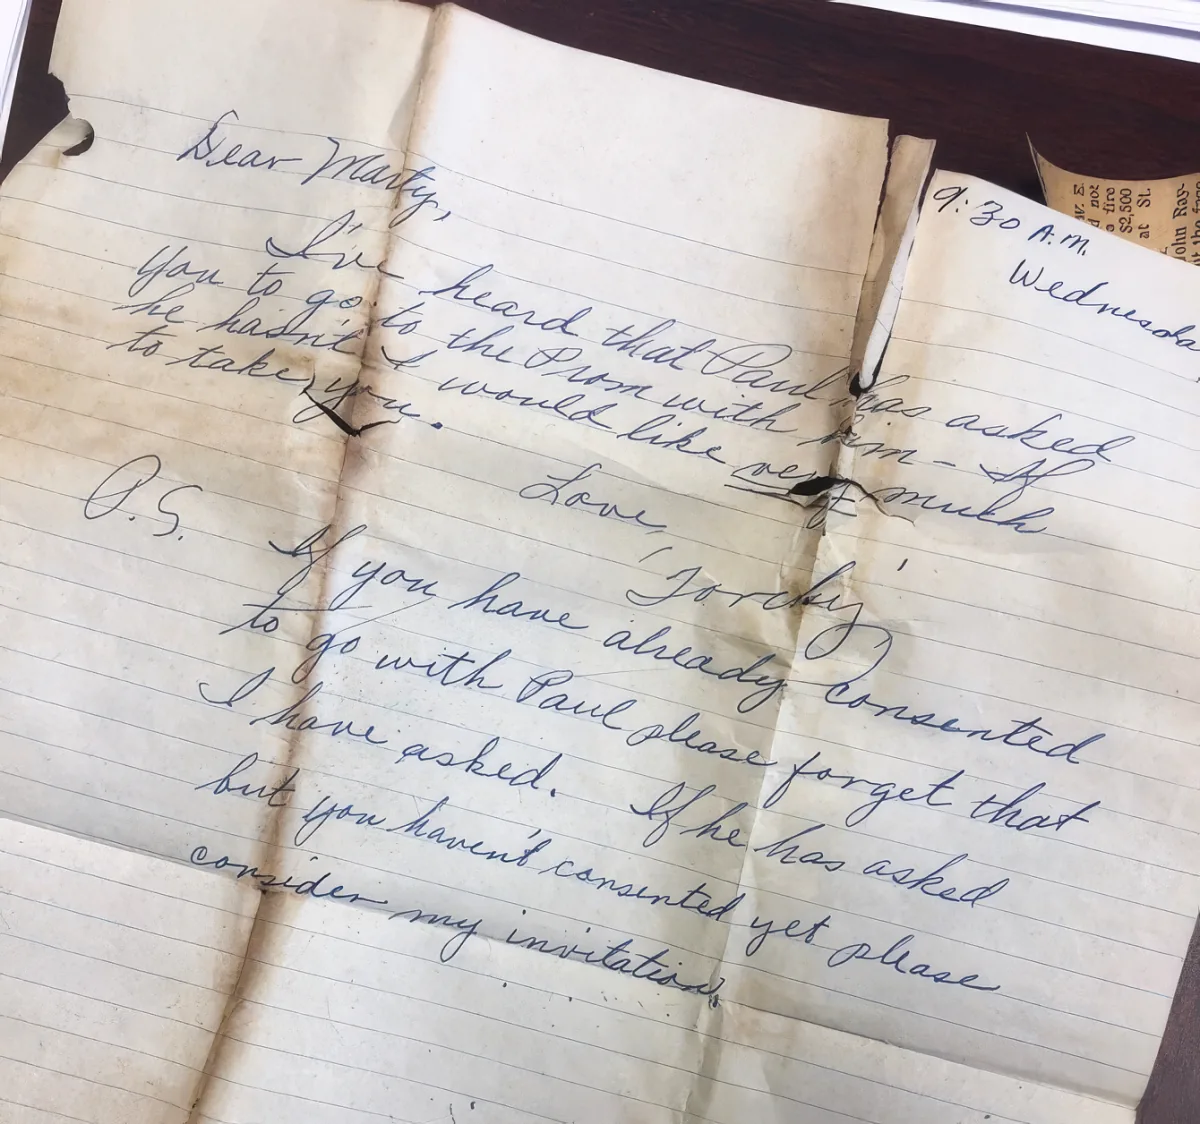 9:30 A.M.
Wednesda
Dear Marty,
I've heard that Paul has asked
you to go to the Prom with him - If
he hasn't I would like very much
to take you.
Love,
'Torchy'
P.S. If you have already consented
to go with Paul please forget that
I have asked. If he has asked
but you haven't consented yet please
consider my invitation.
W. E.
d not
fire
$2,500
at St.
John Ray-